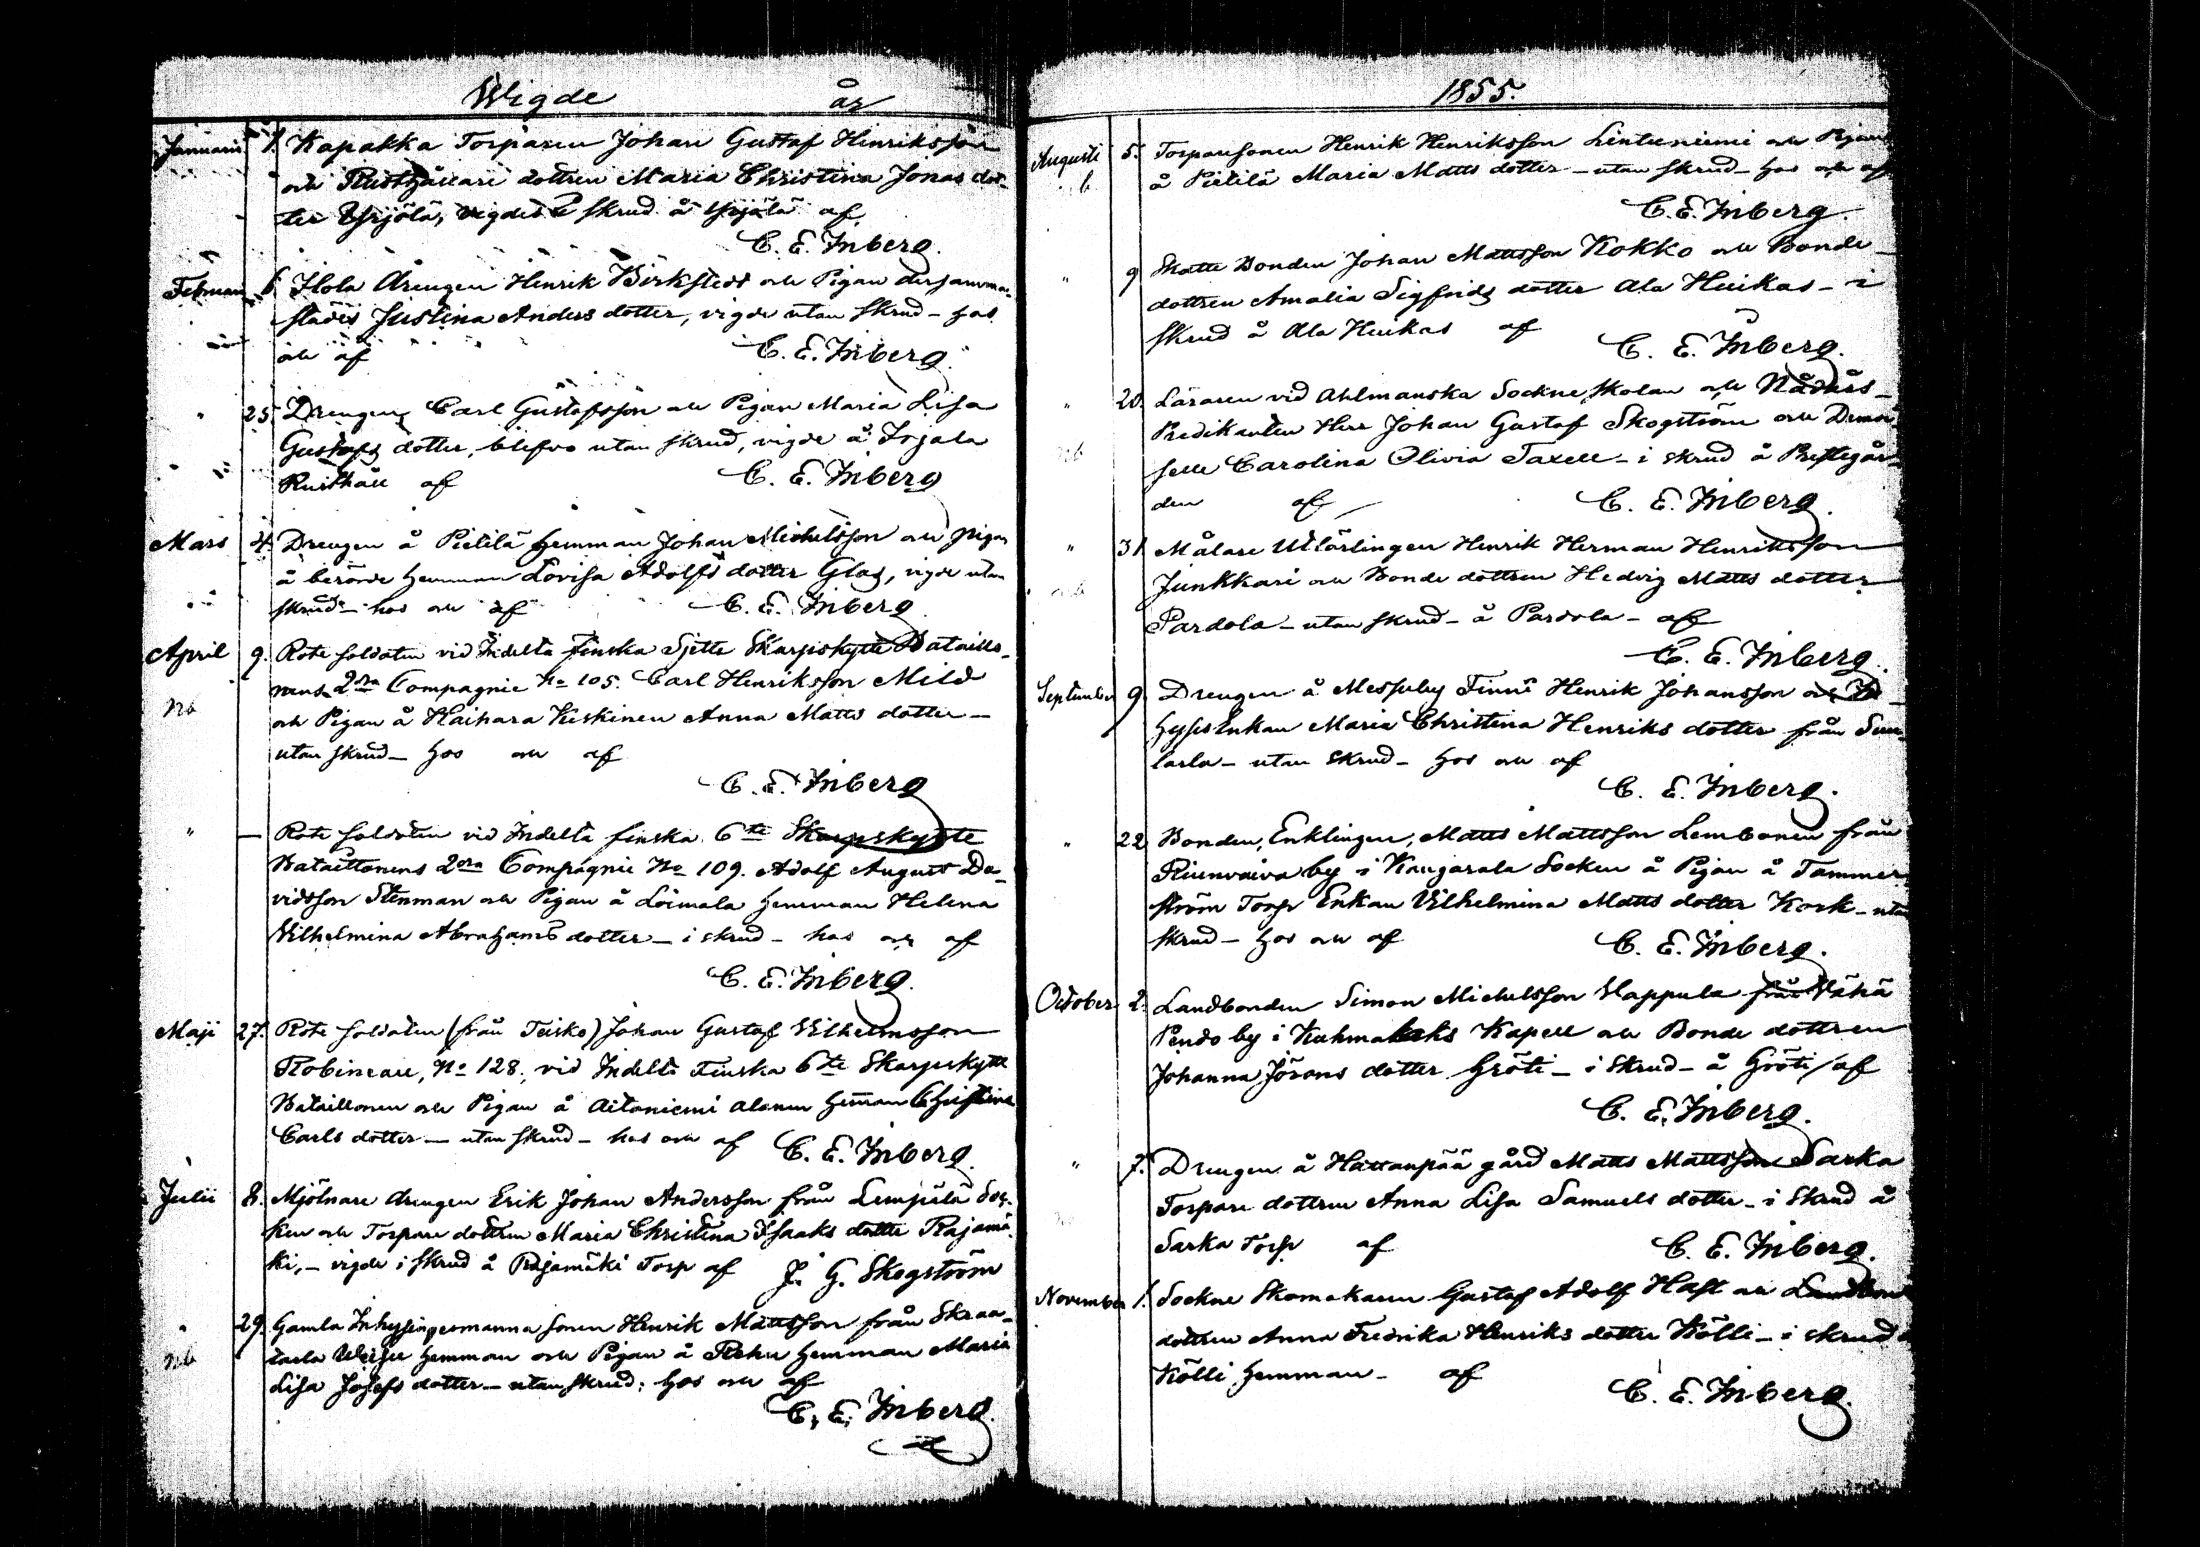 Wigde år
Januarii 1. Kapakka Torparen Johan Gustaf Henriksson
och Rusthållare dottren Maria Christina Jonas dot-
ter Yrjölä, vigdes i skrud å Yrjölä af
C. E. Inberg.
Februarii 6. Ilola drengen Henrik Birkstedt och Pigan dersamma-
städes Justina Anders dotter, vigde utan skrud - hos
och af C. E. Inberg.
" 25. Drengen Carl Gustafsson och Pigan Maria Lisa
Gustafs dotter, blefvo utan skrud, vigde å Irjala
Rusthåll af C. E. Inberg
Mars 4. Drengen å Pietilä hemman Johan Michelsson och pigan
å berörde hemman Lovisa Adolfs dotter Glad, vigde utan
skrud - hos och af C. E. Inberg
April 9. Rote soldaten vid Indelta finska Sjette Skarpskytte Bataillo-
nens 2dra Compagnie No 105. Carl Henriksson Mild
nb och Pigan å Haihara Keskinen Anna Matts dotter -
utan skrud - hos och af
C. E. Inberg
" — Rote soldaten vid Indelta finska 6te Skarpskytte
Bataillonens 2dra Compagnie No 109. Adolf August Da-
vidsson Stenman och Pigan å Loimala hemman Helena
Wilhelmina Abrahams dotter - i skrud - hos och af
C. E. Inberg.
Maji 27. Rote soldaten (från Teisko) Johan Gustaf Wilhelmsson
Robineau, No 128., vid Indelta Finska 6te Skarpskytte
Bataillonen och Pigan å Aitoniemi Alanen hemman Christina
Carls dotter - utan skrud - hos och af C. E. Inberg.
Julii 8. Mjölnare drengen Erik Johan Andersson från Lempälä Soc-
ken och Torpare dottren Maria Christina Isaaks dotter Rajamä-
ki, - vigde i skrud å Rajamäki Torp af J. G. Skogström
" 29. Gamla Inhysingesmanna sonen Henrik Mattsson från Skraa-
nb hemman och Pigan å hemman Maria
Lisa Josefs dotter - utan skrud, hos och af
C. E. Inberg.
1855.
Augusti 5. Torparesonen Henrik Henriksson Lintuniemi och Pigan
å Pietilä Maria Matts dotter - utan skrud - hos och af
C. E. Inberg.
" 9 Skatte Bonden Johan Mattsson Kokko och Bonde-
dottren Amalia Sigfrids dotter Ala Huikas - i
skrud å Ala Huikas af
C. E. Inberg.
" 20. Läraren vid Ahlmanska Sockne, skolan och Nådårs-
Predikanten Herr Johan Gustaf Skogström och Demoi-
selle Carolina Olivia Taxell - i skrud å Prestegår-
den af C. E. Inberg.
" 31 Målare Utlärlingen Henrik Herman Henriksson
Junkkari och Bonde dottren Hedvig Matts dotter
Pardola - utan skrud - å Pardola - af
C. E. Inberg.
September 9. Drengen å Messuby Finni Henrik Johansson och In-
hyses Enkan Maria Christina Henriks dotter från
- utan skrud - hos och af
C. E. Inberg.
" 22 Bonden, Enklingen, Matts Mattsson Lembonen från
Riunvaiva by i Kangasala Socken å Pigan å Tammer-
ström Torp Enkan Wilhelmina Matts dotter Kork - utan
skrud - hos och af C. E. Inberg.
October 2. Landbonden Simon Michelsson Wappula från Vähä
Pendo by i Kuhmalaks Kapell och Bonde dottren
Johanna Jörans dotter Gröti - i skrud - å Gröti af
C. E. Inberg.
" 7. Drengen å Hattanpää gård Matts Mattsson Sarka
Torpare dottren Anna Lisa Samuels dotter - i skrud å
Sarka Torp af C. E. Inberg.
November 1. Sockne Skomakaren Gustaf Adolf Haft och Landbonde
dottren Anna Fredrika Henriks dotter Kölli - i skrud å
Kölli hemman - af
C. E. Inberg.